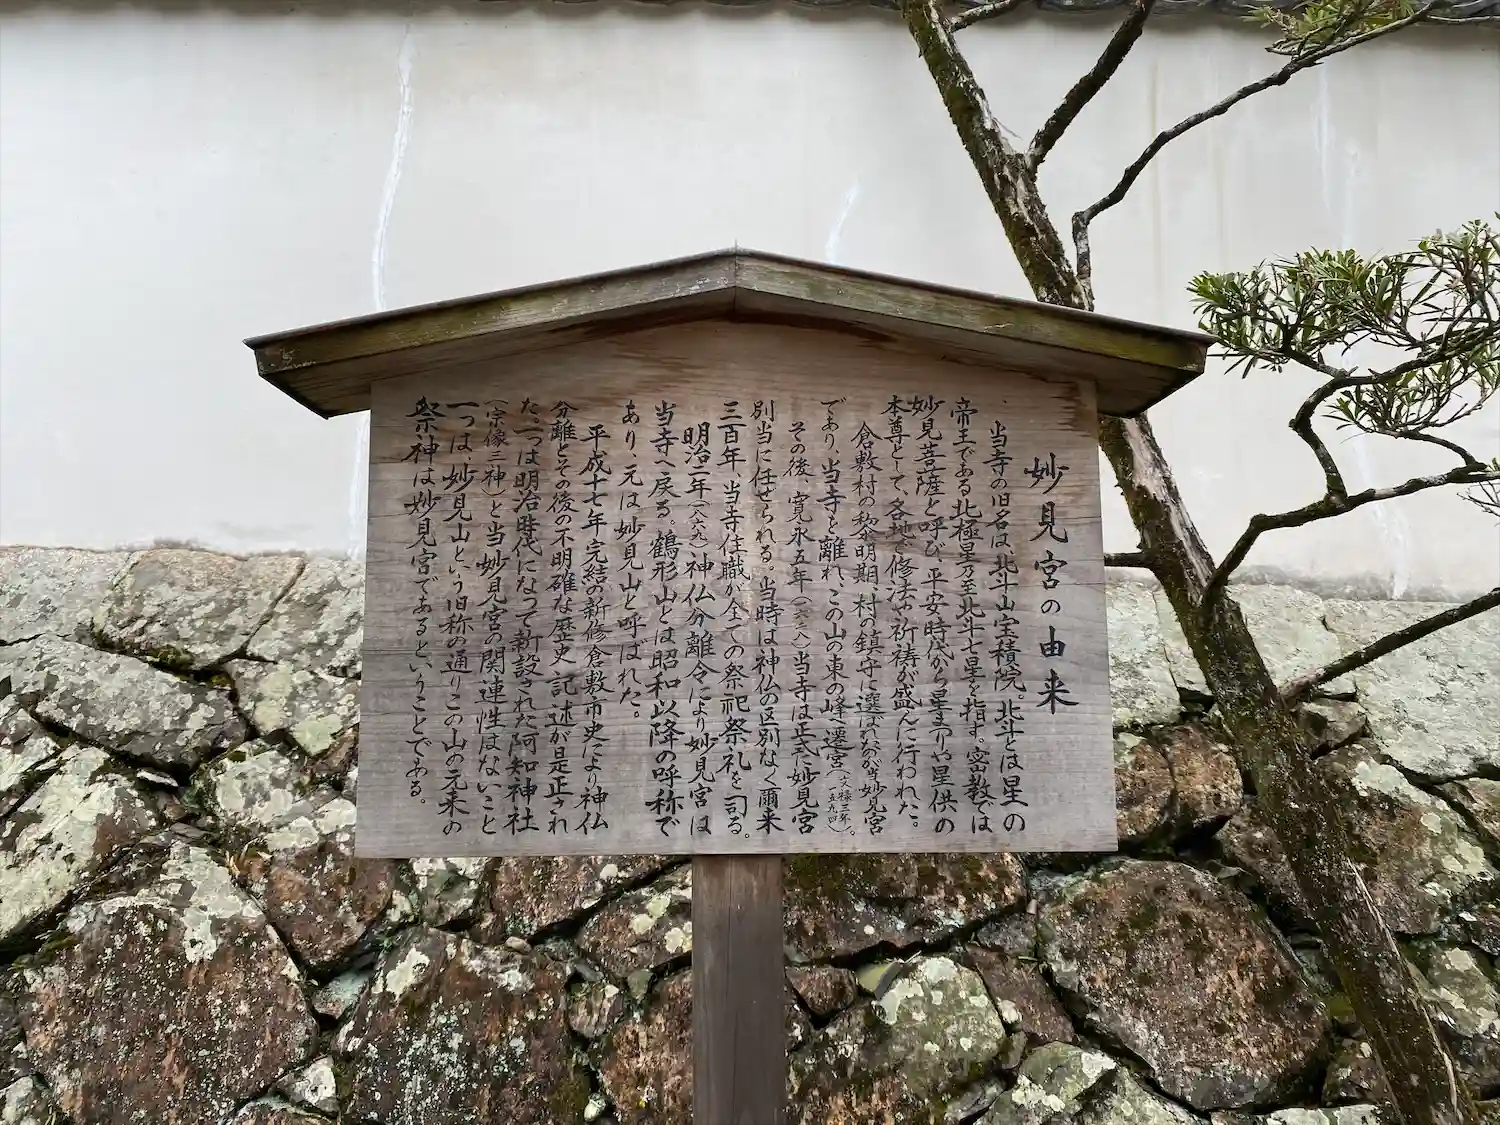 妙見宮の由来
当寺の旧名は、北斗山宝積院。北斗とは星の
帝王である北極星乃至北斗七星を指す。密教では
妙見菩薩と呼び、平安時代から星まつりや星供の
本尊として、各地で修法や祈祷が盛んに行われた。
倉敷村の黎明期、村の鎮守に選ばれながが当妙見宮
であり、当寺を離れ、この山の東の峰へ遷宮(文禄三年 一五九四)。
その後、寛永五年(一六二八)当寺は正式に妙見宮
別当に任せられる。当時は神仏の区別なく爾来
三百年、当寺住職が全ての祭祀祭礼を司る。
明治二年(一八六九)神仏分離令により妙見宮は
当寺へ戻る。鶴形山とは昭和以降の呼称で
あり、元は妙見山と呼ばれた。
平成十七年完結の新修倉敷市史により神仏
分離とその後の不明確な歴史記述が是正され
た。一つは明治時代になって新設された阿知神社
(宗像三神)と当妙見宮の関連性はないこと
一つは、妙見山という旧称の通りこの山の元来の
祭神は妙見宮であるということである。